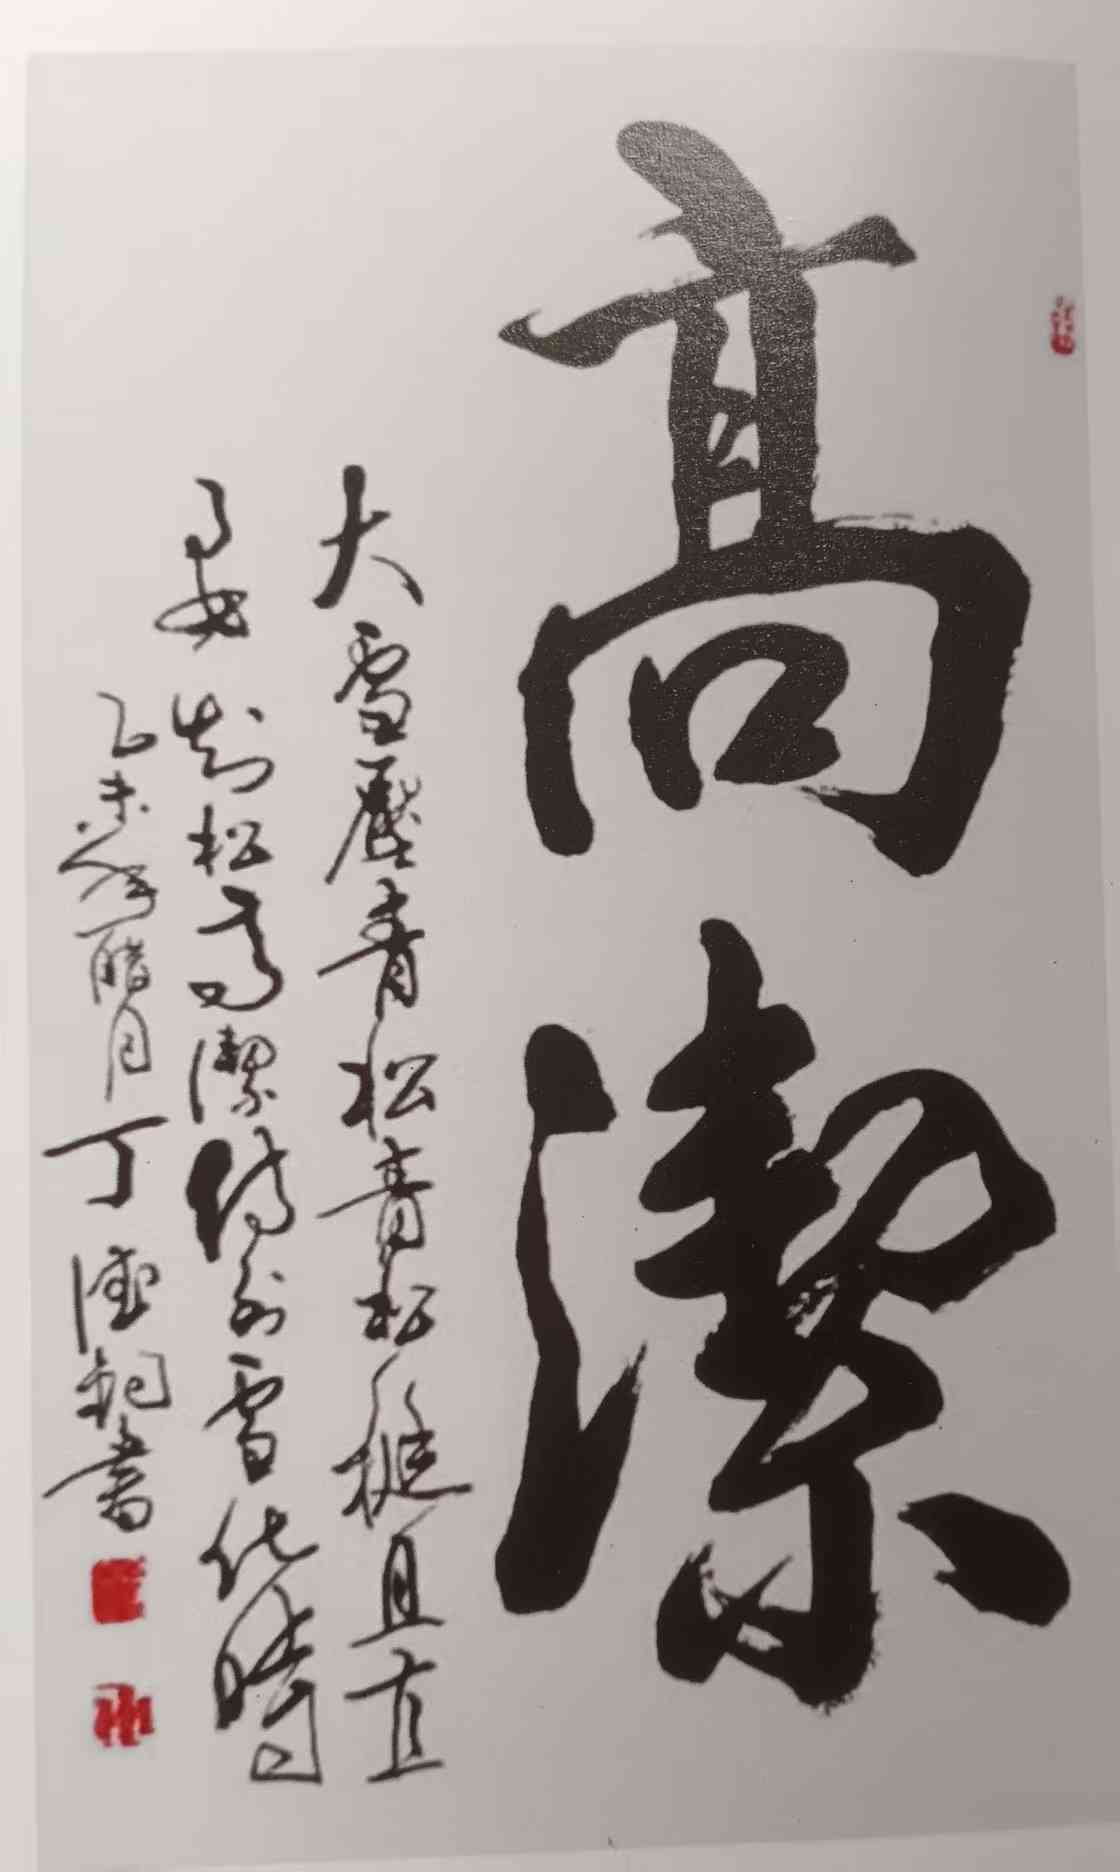 高潔
大雪壓青松青松挺且直
要知松高潔待到雪化時
乙未年腊月丁德書